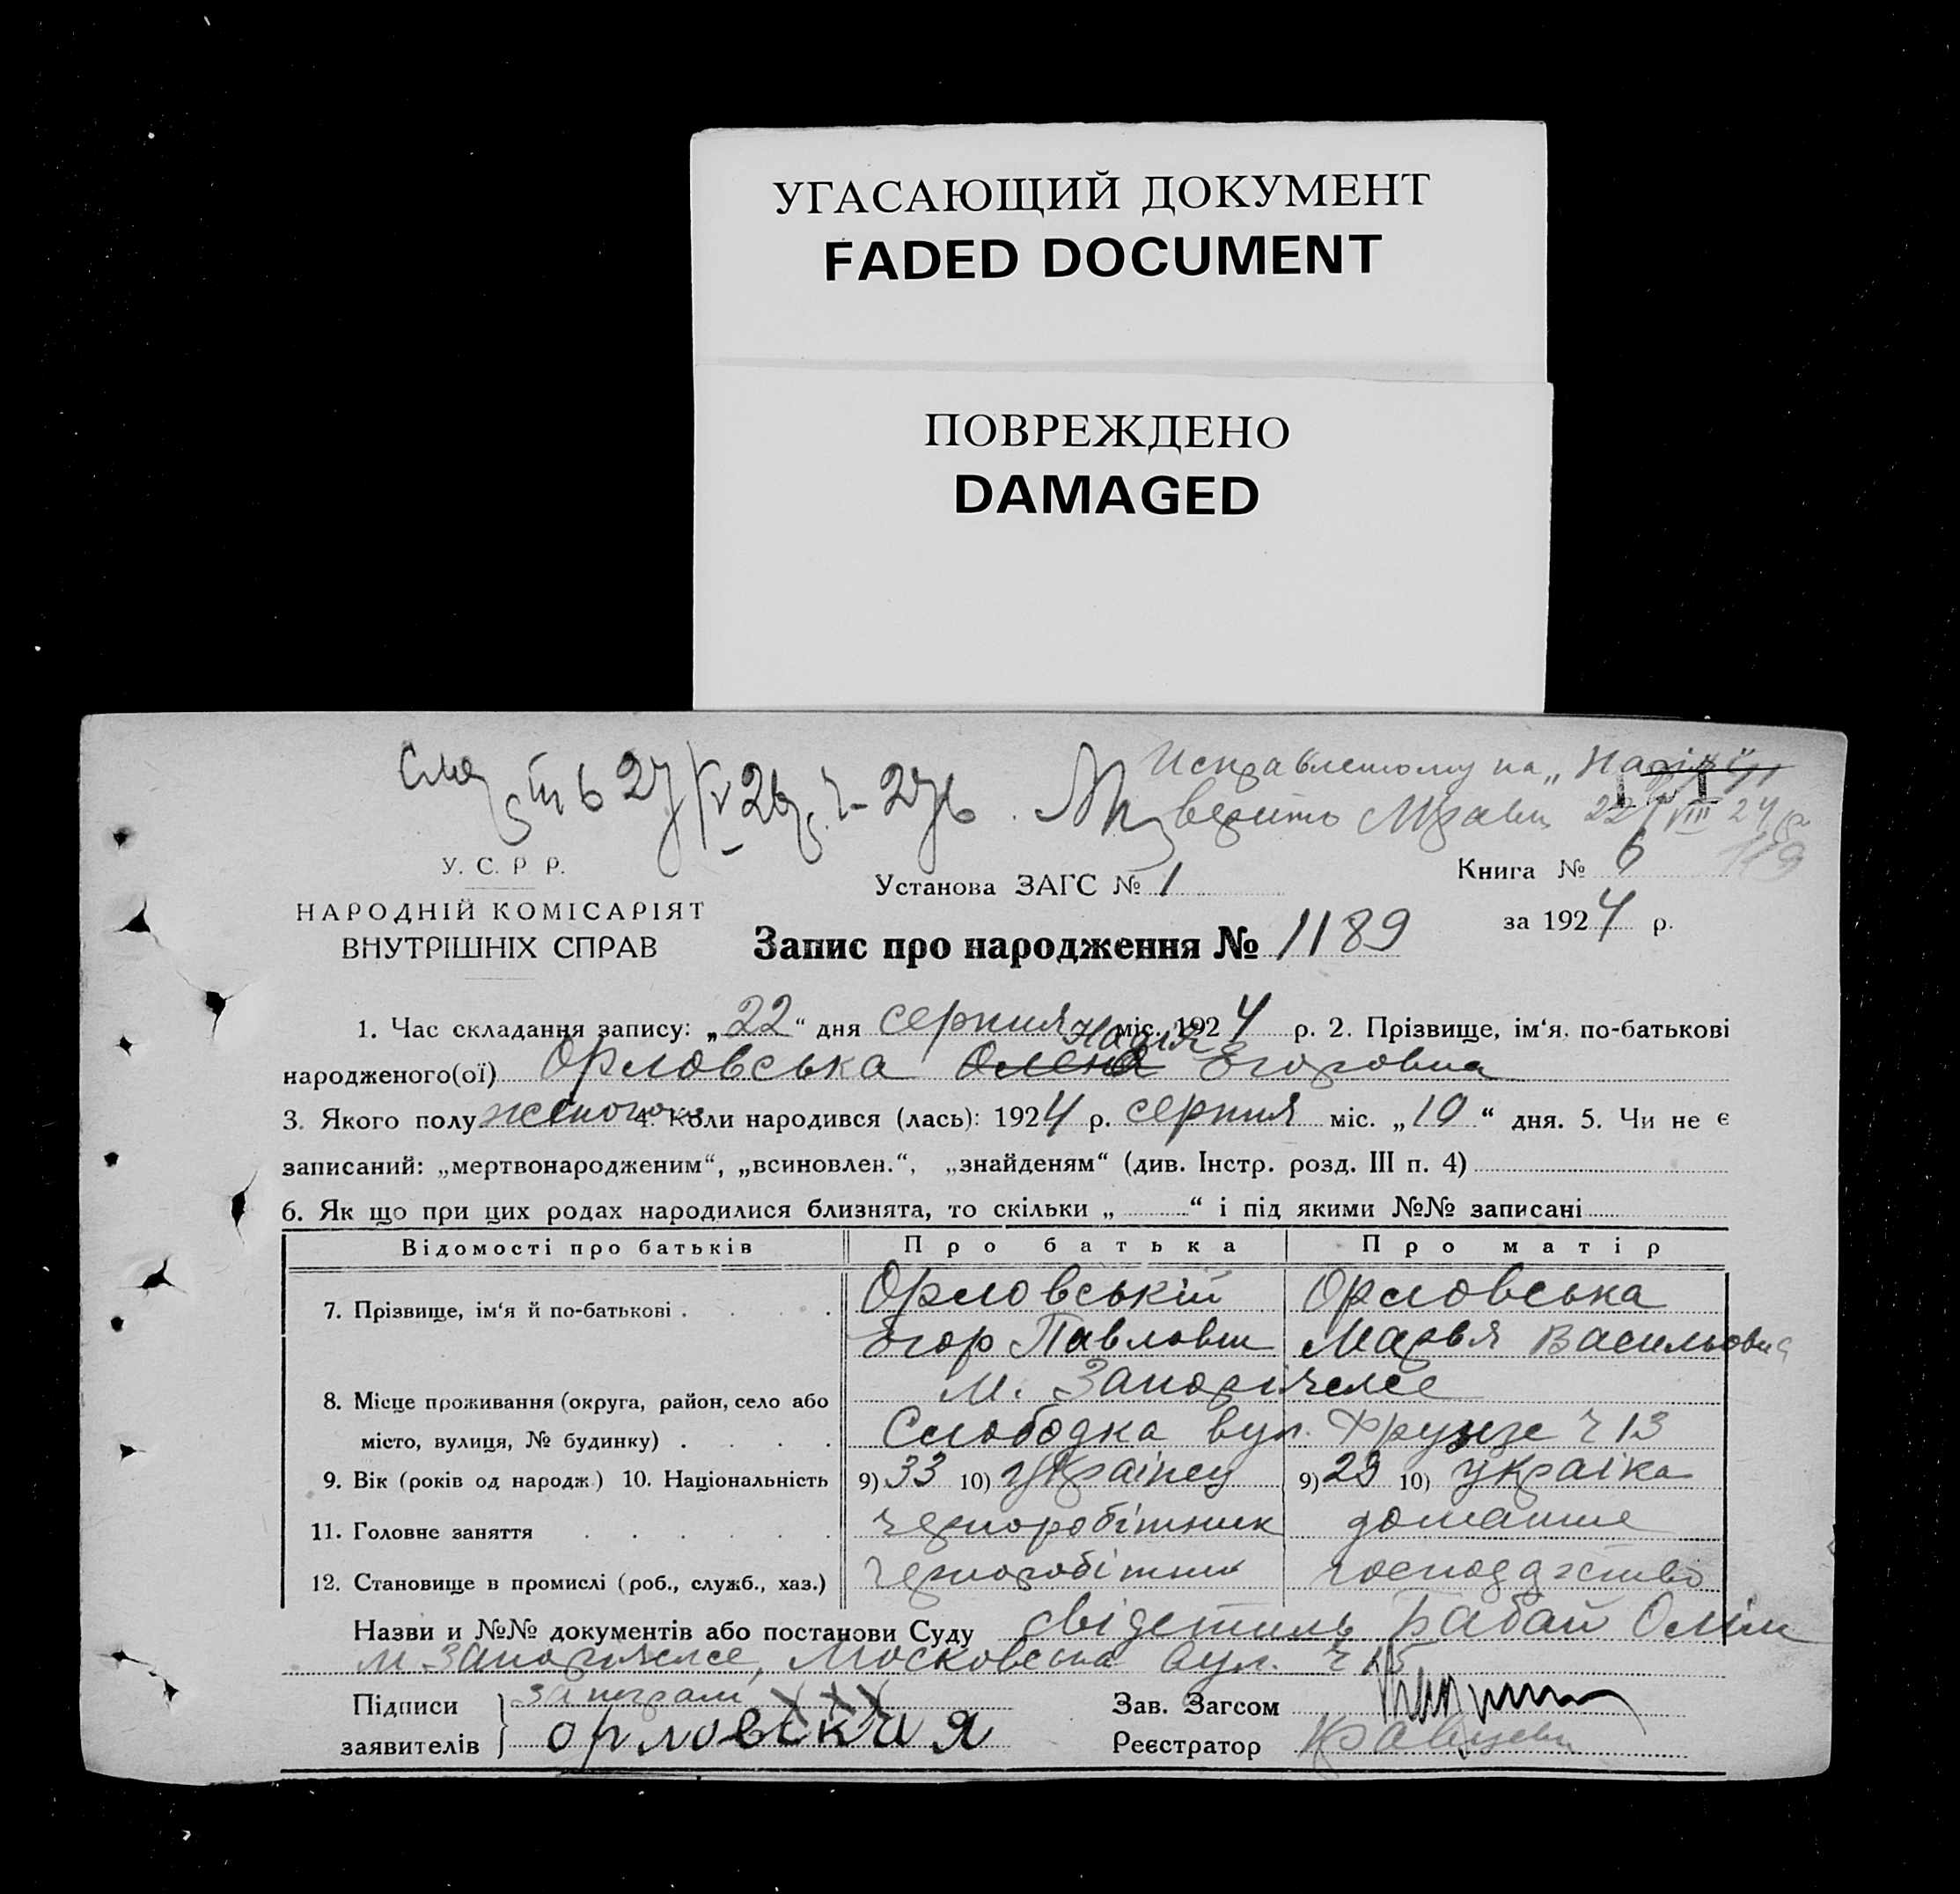 УГАСАЮЩИЙ ДОКУМЕНТ
FADED DOCUMENT
ПОВРЕЖДЕНО
DAMAGED
Исправленому на „
верить 22/VIII 24
У. С. Р. Р.
НАРОДНІЙ КОМІСАРІЯТ
ВНУТРІШНІХ СПРАВ
Установа ЗАГС № 1
Книга № 6
за 1924 р.
Запис про народження № 1189
1. Час складання запису: „22“ дня серпня міс. 1924 р. 2. Прізвище, ім'я, по-батькові
Надія
народженого(ої) Орловська Олена Єгоровна
3. Якого полу женого 4. Коли народився (лась): 1924 р. серпня міс. „10“ дня. 5. Чи не є
записаний: „мертвонародженим“, „всиновлен.“, „знайденям“ (див. Інстр. розд. III п. 4)
6. Як що при цих родах народилися близнята, то скільки „ “ і під якими №№ записані
Відомості про батьків Про батька Про матір
7. Прізвище, ім'я й по-батькові Орловській Орловська
Єгор Павлович Марья Васильовна
8. Місце проживання (округа, район, село або м. Запоріжжє
місто, вулиця, № будинку) Слободка вул. Фрунзе ч 13
9. Вік (років од народж.) 10. Національність 9) 33 10) українец 9) 29 10) украіка
11. Головне заняття чорноробітник домашнє
12. Становище в промислі (роб., служб., хаз.) чорноробітник господарство
Назви и №№ документів або постанови Суду свідетиль Бабай
м. Запоріжжє, Московська вул. ч 15
Підписи
заявителів
ххх
орловская
Зав. Загсом
Реєстратор